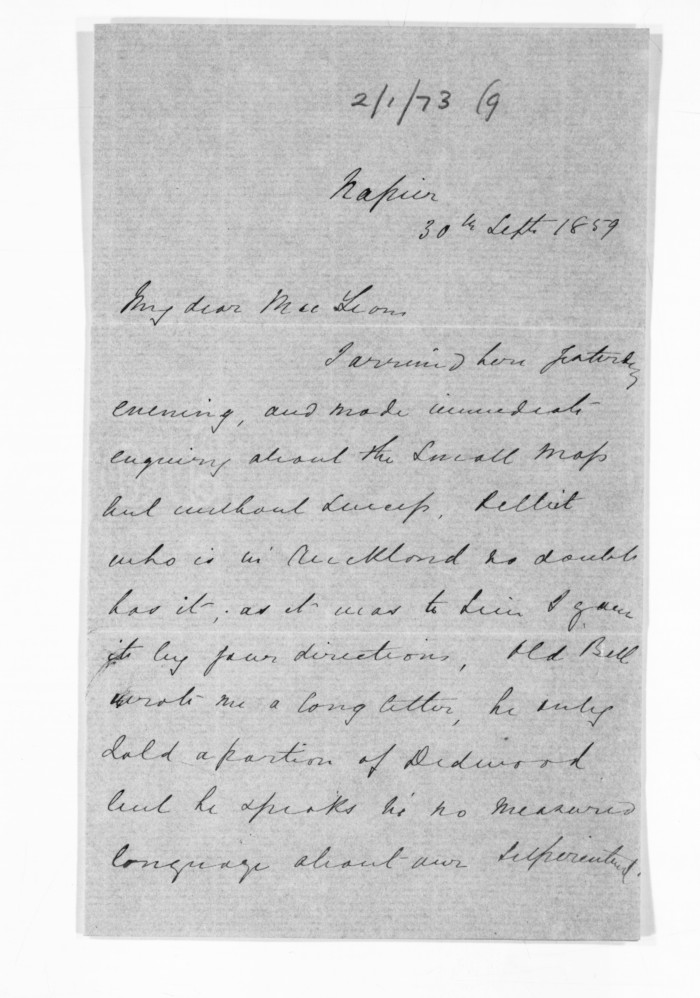 2/1/73 (9
Napier
30th Septr 1859
My dear Mac Lean
I arrived here yesterday
evening, and made immediate
enquiry about the Small Map
but without success,
who is in Auckland no doubt
has it, as it was to him I gave
it by your directions, Old Bell
wrote me a long letter, he only
sold a portion of
but he speaks in no measured
language about our Superintend.